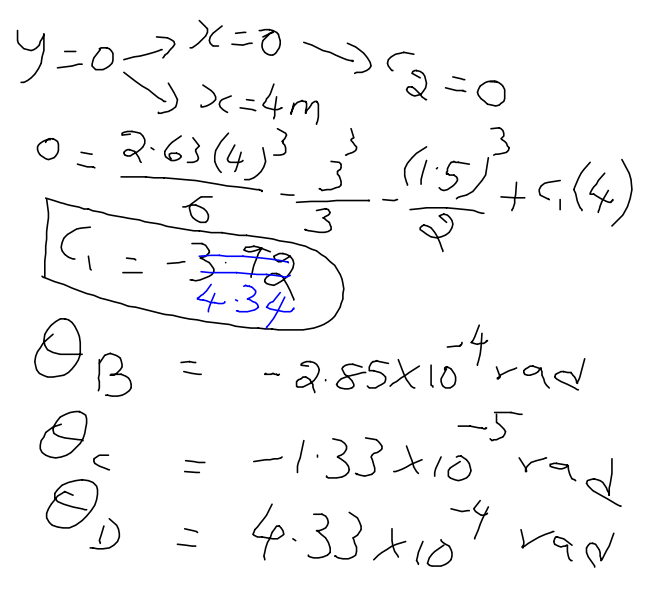 y = 0 → x = 0 → c₂ = 0
→ x = 4m
0 = 2.63(4)³/6 - 3³/3 - (1.5)³/2 + c₁(4)
C₁ = -3.92
4.34
θ_B = -2.85×10⁻⁴ rad
θ_c = -1.33×10⁻⁵ rad
θ_D = 4.33×10⁻⁴ rad